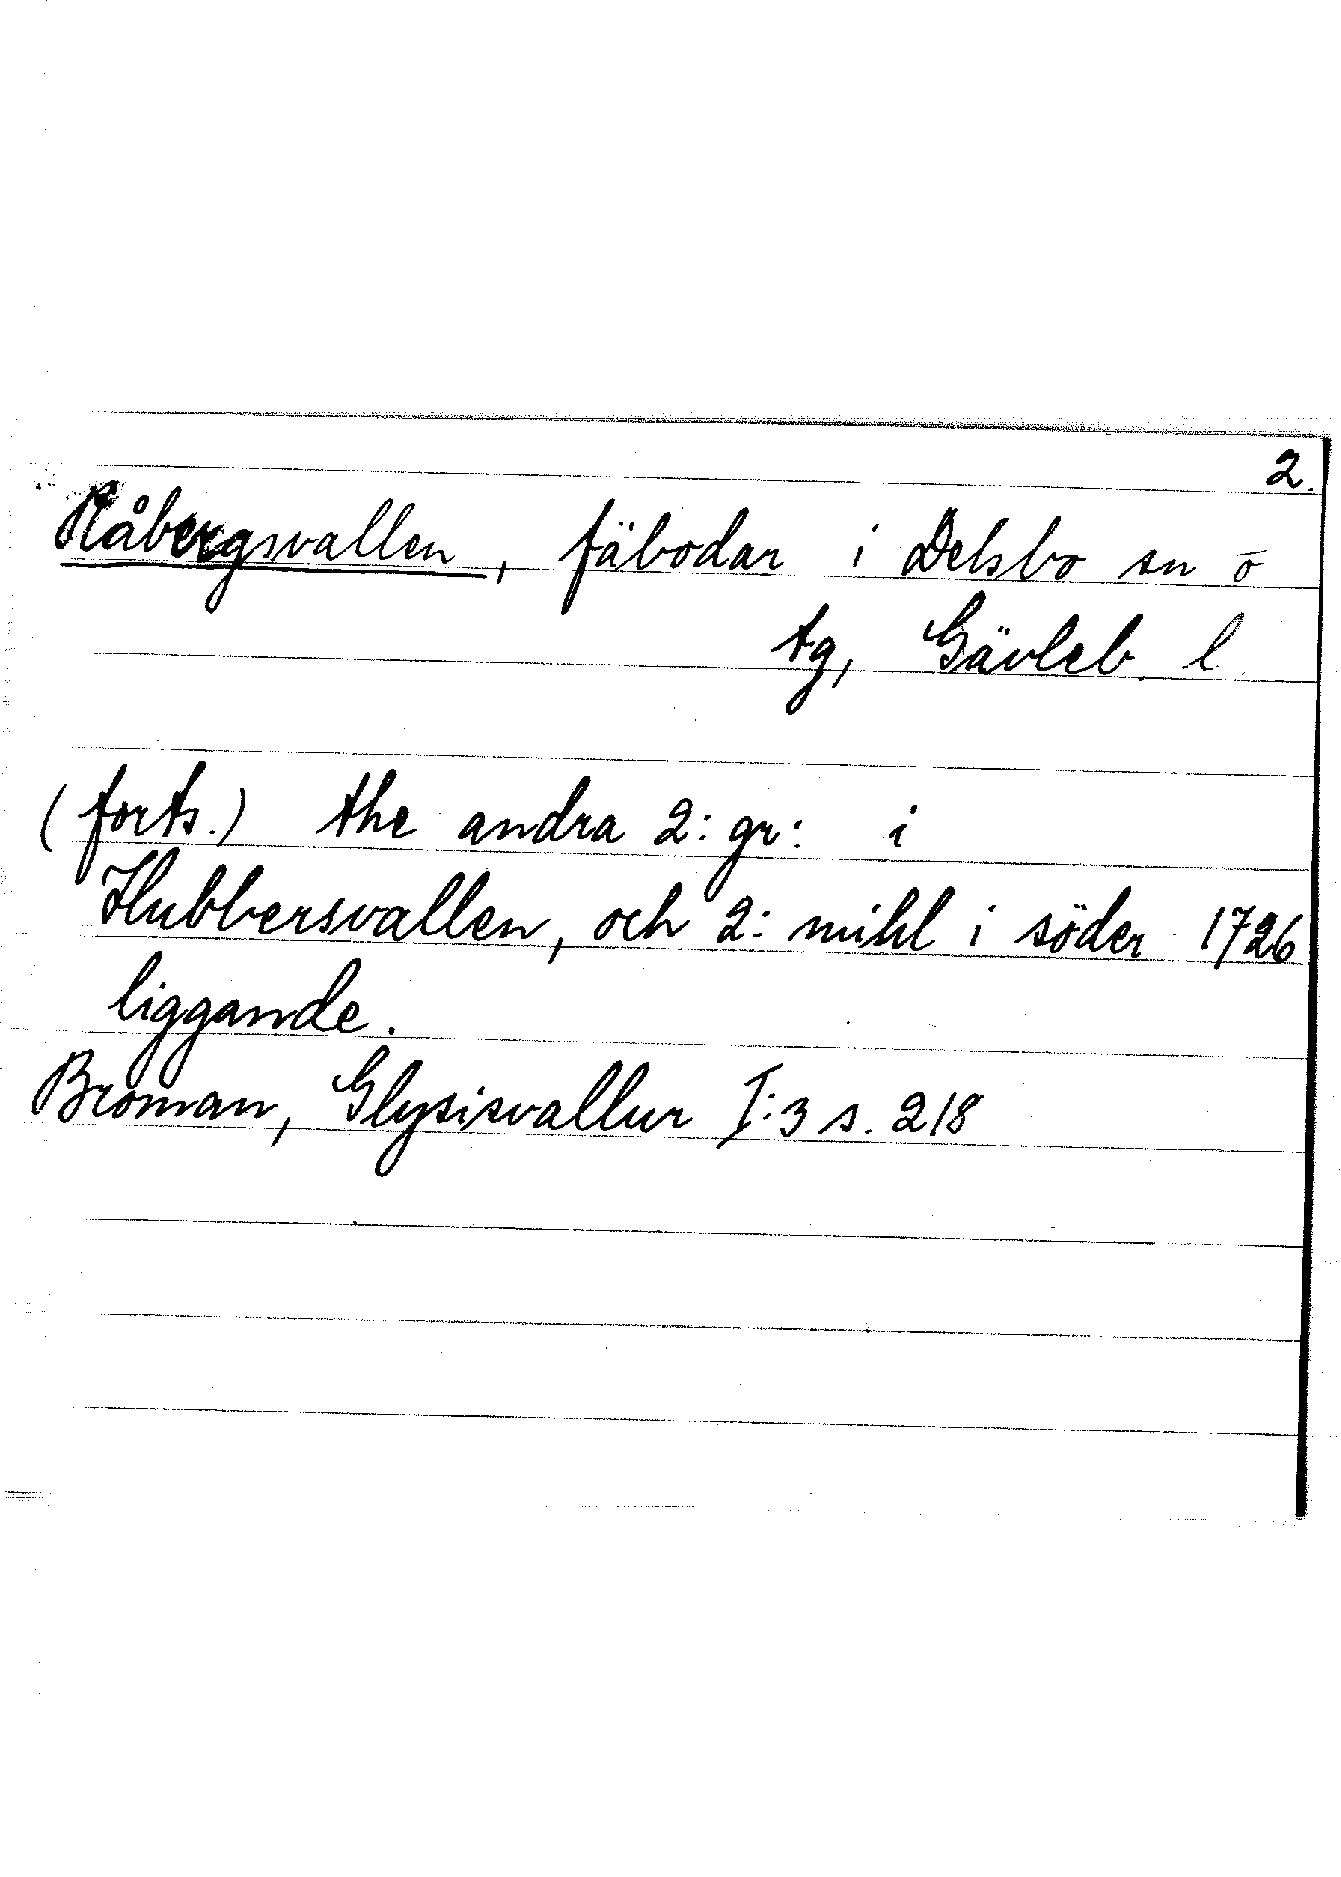 2.
Råbergsvallen, fäbodar i Delsbo sn o
tg, Gävleb. l
(forts.) the andra 2: gr: i
Hubbersvallen, och 2: mihl i söder 1726
liggande.
Broman, Glysisvallur I:3 s. 218